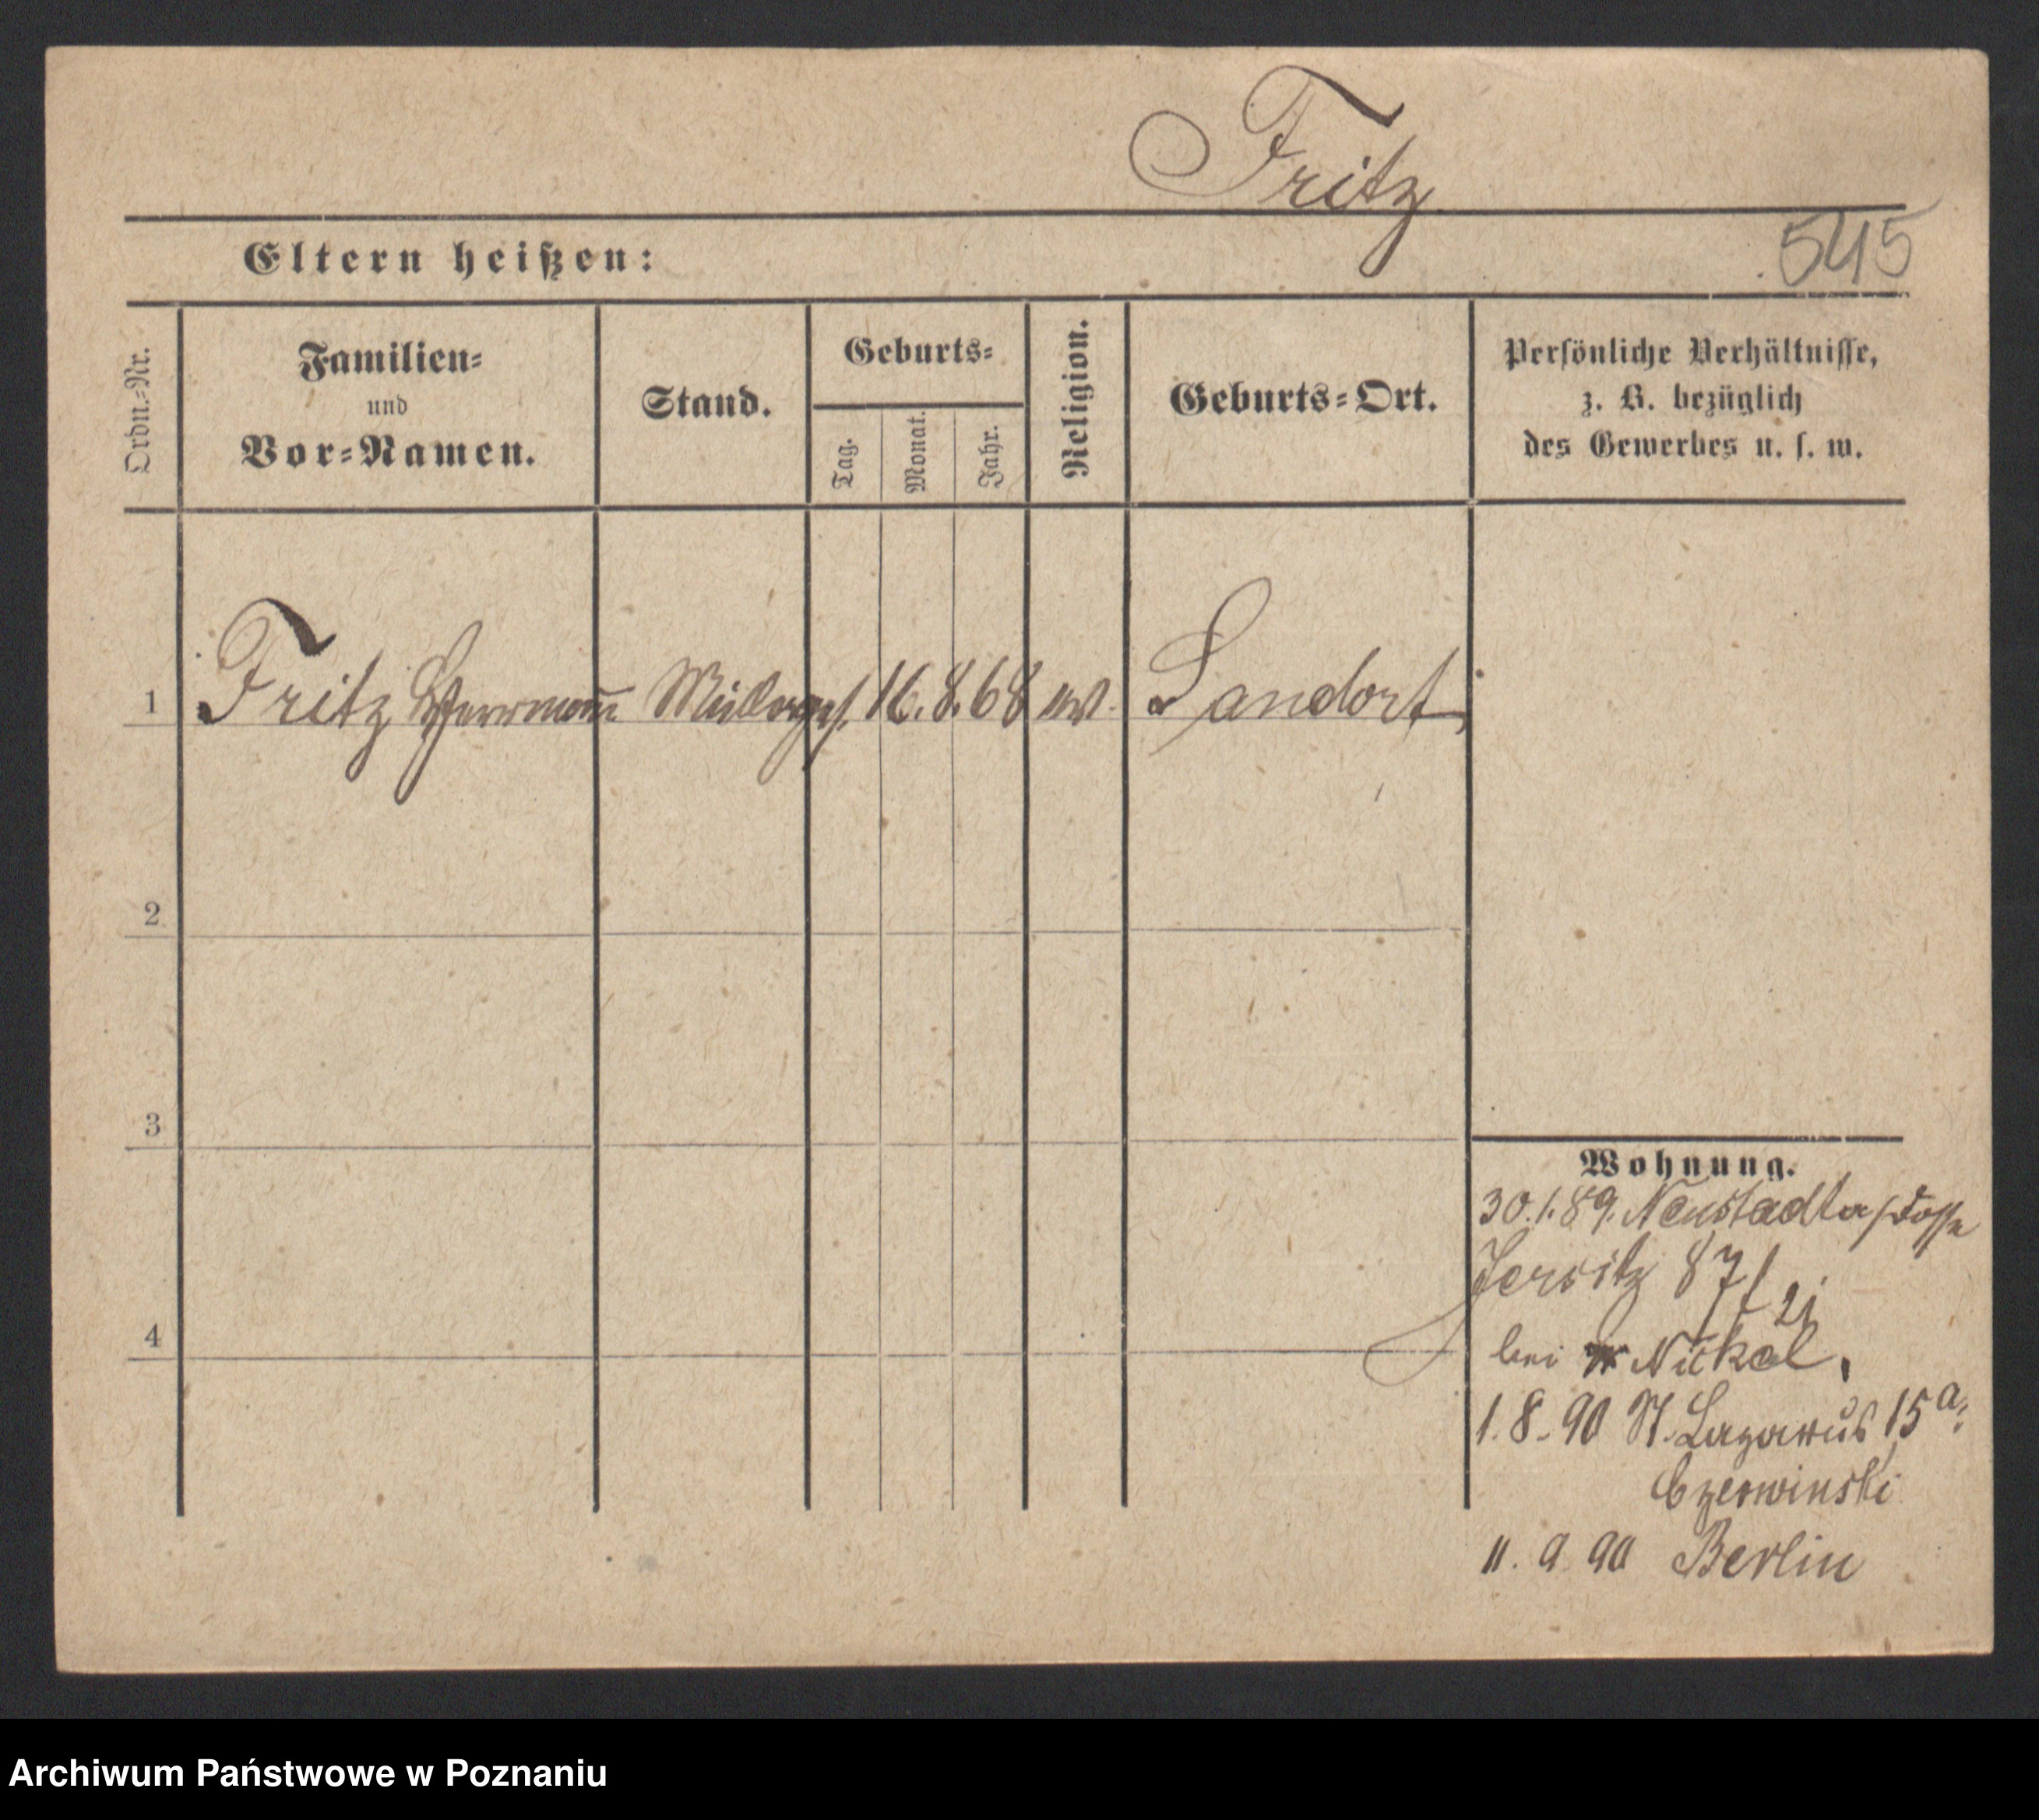 Fritz
545
Eltern heißen:
Ordn.-Nr.
Familien-
und
Vor-Namen.
Stand.
Geburts-
Tag.
Monat.
Jahr.
Religion.
Geburts-Ort.
Persönliche Verhältnisse,
z. B. bezüglich
des Gewerbes u. s. w.
1 Fritz Herrmann Müllerges. 16. 8. 68 ev. Landort
2
3
4
Wohnung.
30.1.89. Neustadt a/Dosse
Jersitz 87/21
bei Nickel.
1.8.90 St. Lazarus 15a
Czerwinski
11. 9 90 Berlin
Archiwum Państwowe w Poznaniu